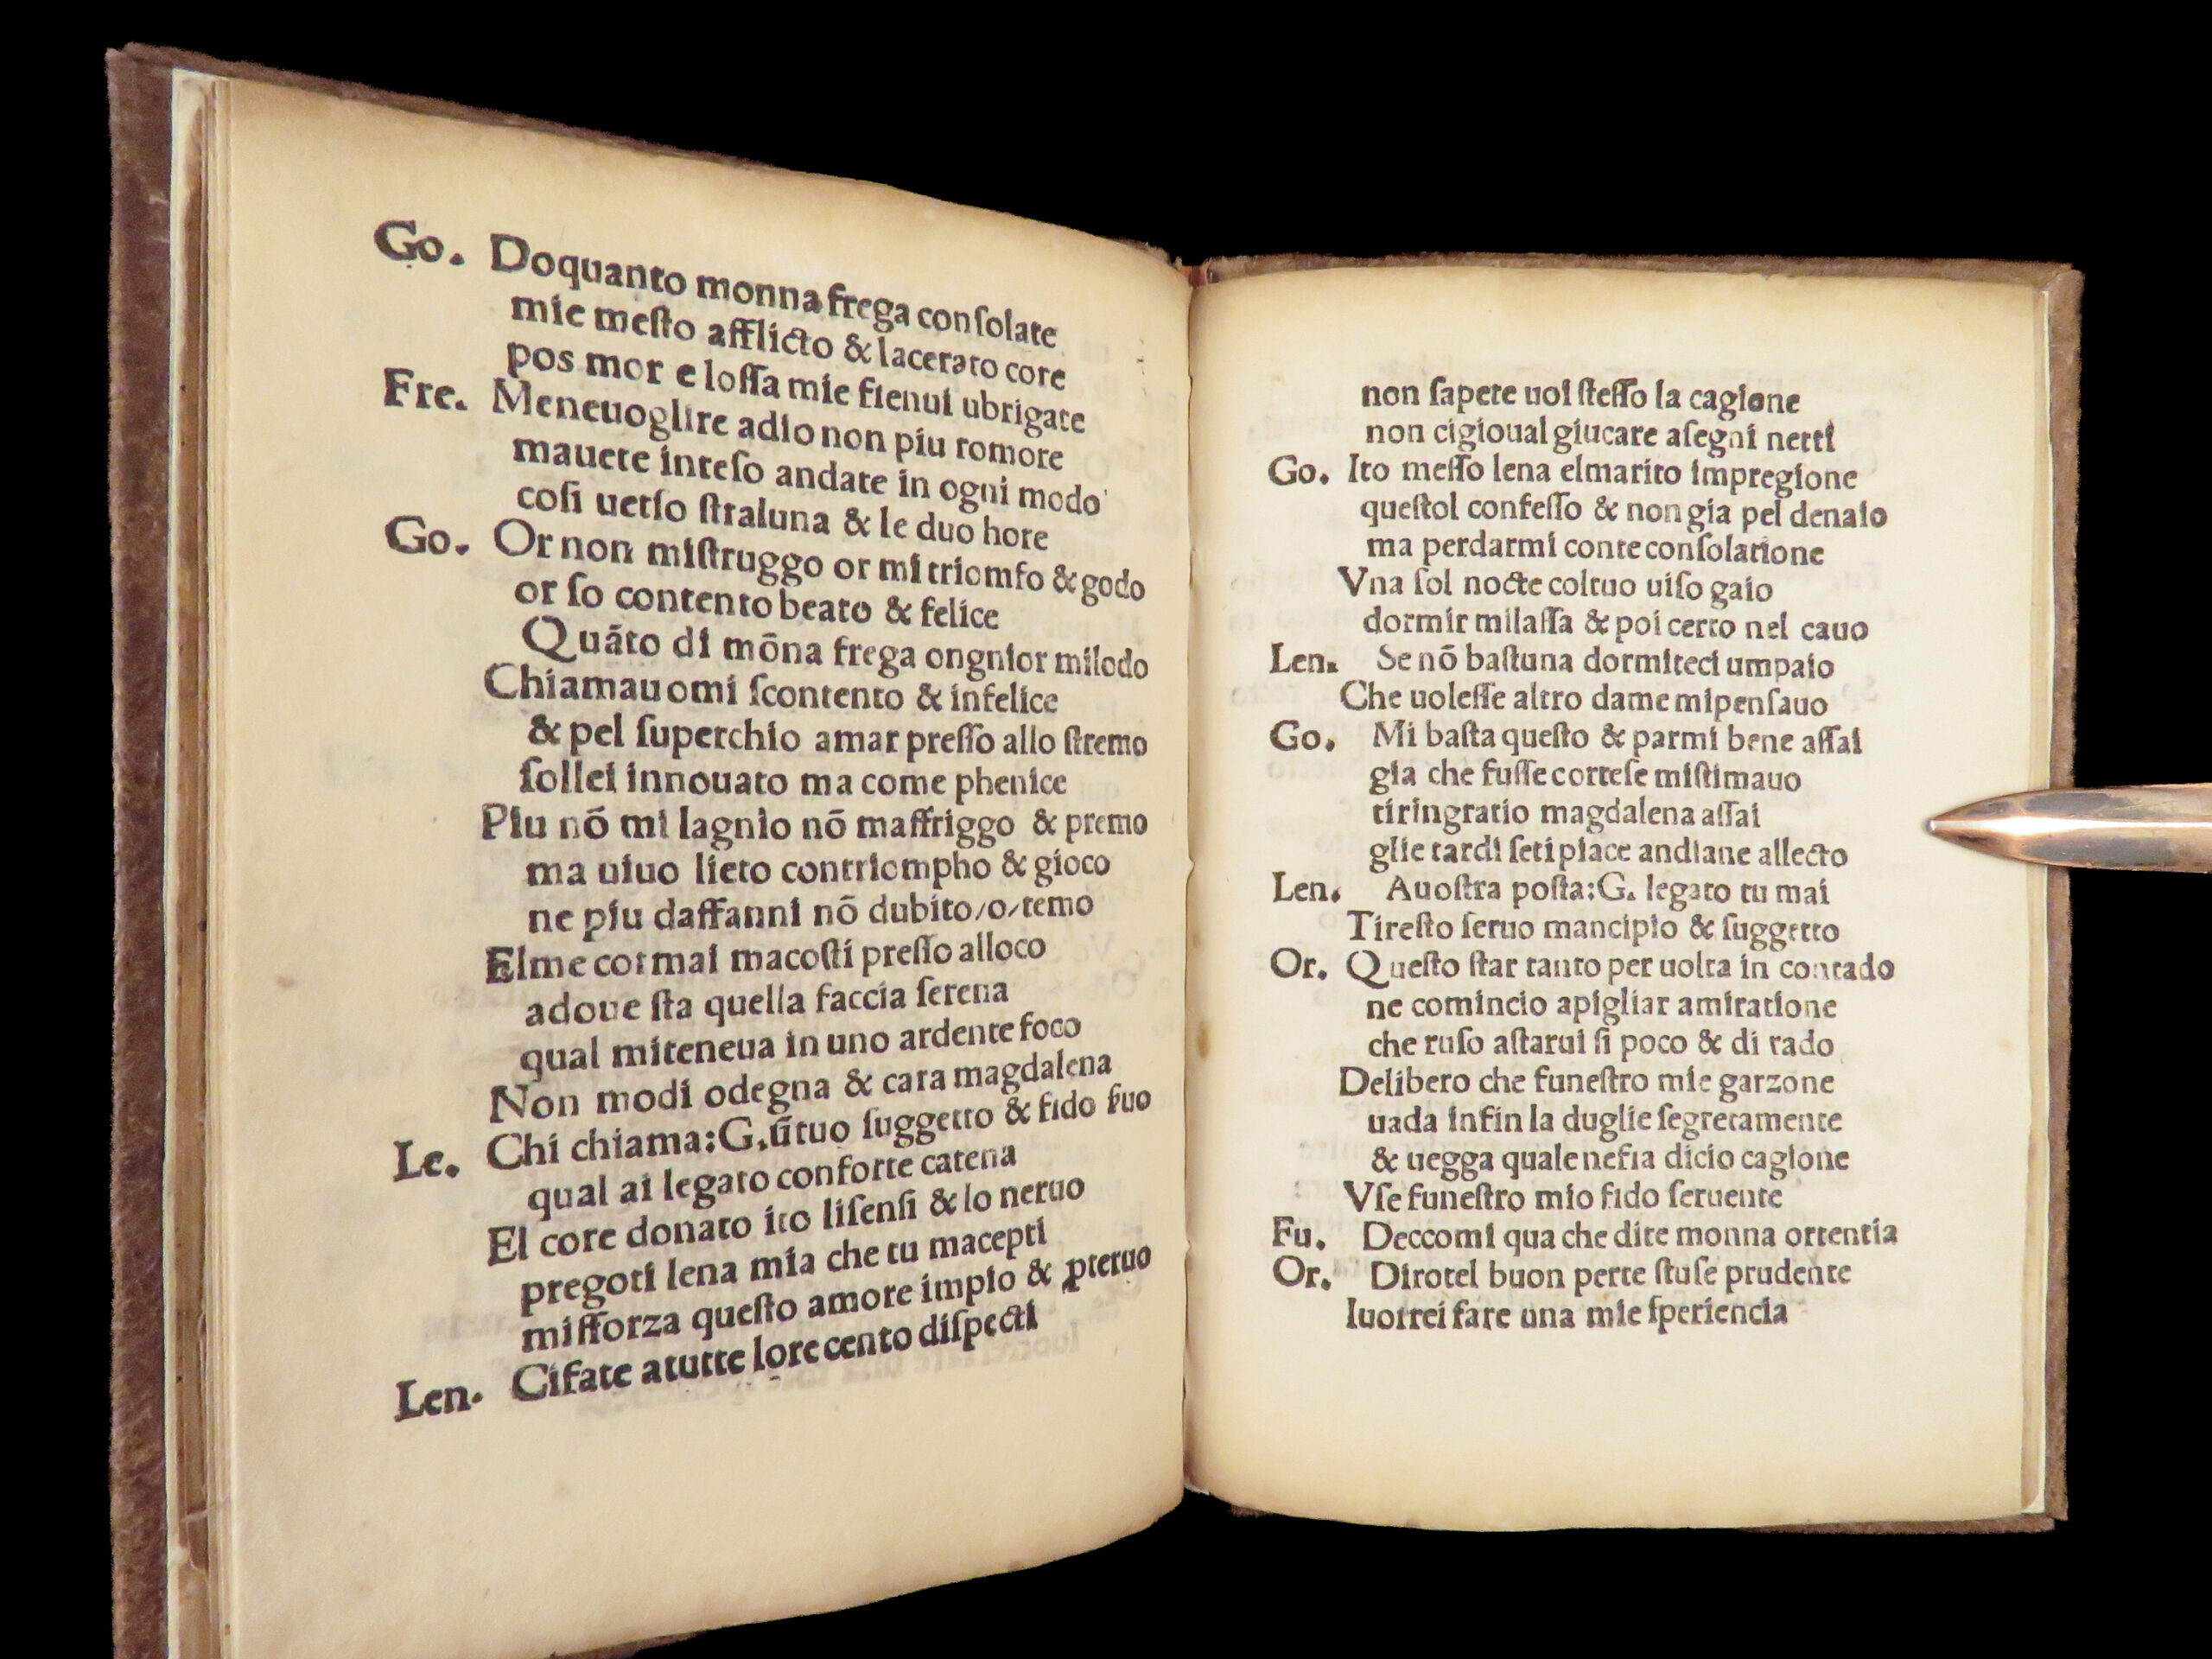 Go. Doquanto monna frega conſolate
mie meſto afflicto & lacerato core
pos mor e loſſa mie fienui ubrigate
Fre. Meneuoglire adio non piu romore
mauete inteſo andate in ogni modo
coſi uerſo ſtraluna & le duo hore
Go. Or non miſtruggo or mi triomfo & godo
or ſo contento beato & felice
Quāto di mōna frega ongnior milodo
Chiamauomi ſcontento & infelice
& pel ſuperchio amar preſſo allo ſtremo
ſollei innouato ma come phenice
Piu nō mi lagnio nō maffriggo & premo
ma uiuo lieto contriompho & gioco
ne piu daffanni nō dubito/o/temo
Elme cor mai macoſti preſſo alloco
adoue ſta quella faccia ſerena
qual miteneua in uno ardente foco
Non modi odegna & cara magdalena
Le. Chi chiama:G.ūtuo ſuggetto & fido ſuo
qual ai legato conforte catena
El core donato ito liſenſi & lo neruo
pregoti lena mia che tu macepti
mifforza queſto amore impio & ꝓteruo
Len. Cifate atutte lore cento diſpecti
non ſapete uoi ſteſſo la cagione
non cigioual giucare aſegni netti
Go. Ito meſſo lena elmarito impregione
queſtol confeſſo & non gia pel denaio
ma perdarmi conte conſolatione
Vna ſol nocte coltuo uiſo gaio
dormir milaſſa & poi certo nel cauo
Len. Se nō baſtuna dormiteci umpaio
Che uoleſſe altro dame mipenſauo
Go. Mi baſta queſto & parmi bene aſſai
gia che fuſſe corteſe miſtimauo
tiringratio magdalena aſſai
glie tardi ſetipiace andiane allecto
Len. Auoſtra poſta:G. legato tu mai
Tireſto ſeruo mancipio & ſuggetto
Or. Queſto ſtar tanto per uolta in contado
ne comincio apigliar amiratione
che ruſo aſtarui ſi poco & di rado
Delibero che funeſtro mie garzone
uada infin la duglie ſegretamente
& uegga quale nefia dicio cagione
Vſe funeſtro mio fido ſeruente
Fu. Deccomi qua che dite monna ortentia
Or. Dirotel buon perte ſtuſe prudente
Iuorrei fare una mie ſperiencia